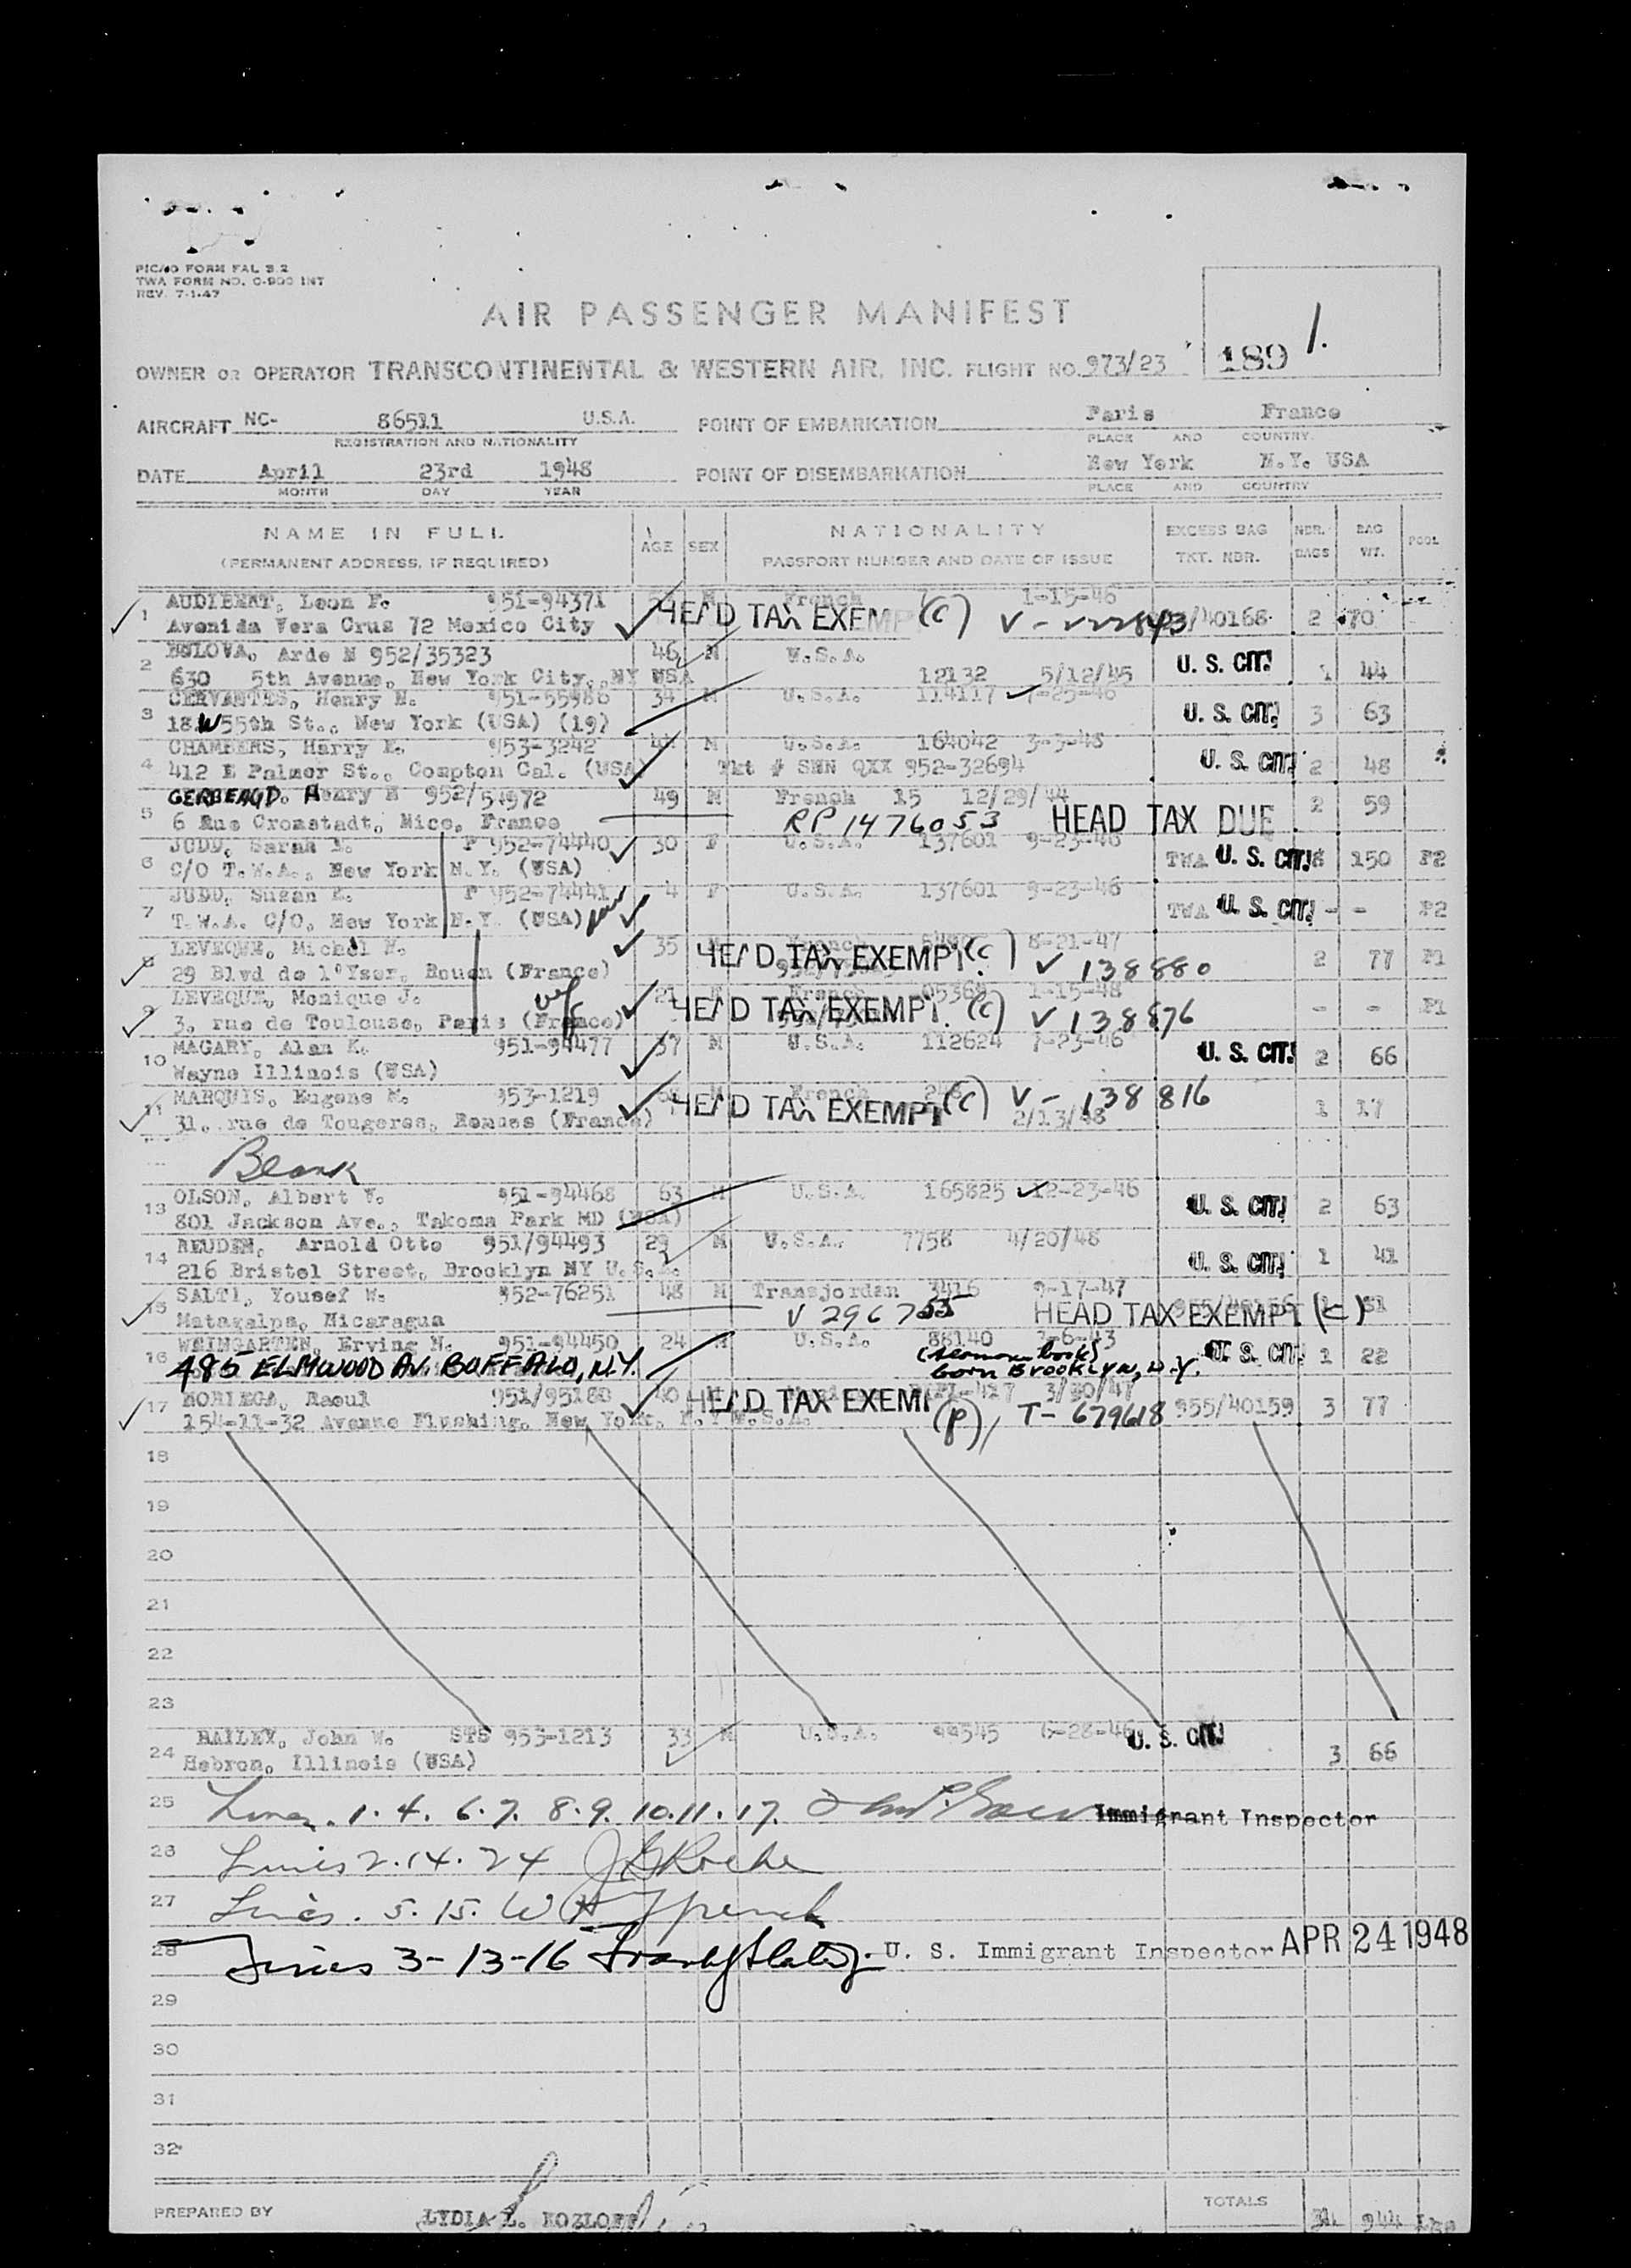 PICAO FORM FAL 3.2
TWA FORM NO. C-900 INT
REV. 7-1-47
AIR PASSENGER MANIFEST
1.
189
OWNER OR OPERATOR TRANSCONTINENTAL & WESTERN AIR, INC. FLIGHT NO. 973/23
AIRCRAFT NC- 86511 U.S.A. POINT OF EMBARKATION Paris France
REGISTRATION AND NATIONALITY PLACE AND COUNTRY
DATE April 23rd 1948 POINT OF DISEMBARKATION New York N.Y. USA
MONTH DAY YEAR PLACE AND COUNTRY
NAME IN FULL AGE SEX NATIONALITY EXCESS BAG NBR. BAG POOL
(PERMANENT ADDRESS, IF REQUIRED) PASSPORT NUMBER AND DATE OF ISSUE TKT. NBR. BAGS WT.
1 AUDIBERT, Leon F. 951-94371 M French 1-15-46
Avenida Vera Cruz 72 Mexico City HEAD TAX EXEMP (C) /40168 2 70
2 BULOVA, Arde N 952/35323 46 M U.S.A. U. S. CIT.
630 5th Avenue, New York City, NY USA 12132 5/12/45 1 44
3 CERVANTES, Henry N. 951-55986 34 M U.S.A. 114117 7-25-46
18 W 55th St., New York (USA) (19) U. S. CIT. 3 63
4 CHAMBERS, Harry E. 953-3242 M U.S.A. 164042 3-3-48
412 E Palmer St., Compton Cal. (USA) Tkt # SNN QXX 952-32694 U. S. CIT. 2 48
5 GERBEAUD, Henry N 952/54972 49 M French 15 12/29/44
6 Rue Cronstadt, Nice, France RP 1476053 HEAD TAX DUE 2 59
6 JUDD, Sarah F 952-74440 30 F U.S.A. 137601 9-23-46
C/O T.W.A., New York N.Y. (USA) TWA U. S. CIT. 150 P2
7 JUDD, Suzan E. F 952-74441 4 F U.S.A. 137601 9-23-46
T.W.A. C/O, New York N.Y. (USA) TWA U. S. CIT. - - P2
8 LEVEQUE, Michel 35 8-21-47
29 Blvd de l'Yser, Rouen (France) HEAD TAX EXEMPT (C) V 138880 2 77 P1
9 LEVEQUE, Monique J. 21 French 1-15-48
3, rue de Toulouse, Paris (France) HEAD TAX EXEMPT. (C) V 138876 - - P1
10 MAGARY, Alan K. 951-94477 37 M U.S.A. 112624 7-23-46
Wayne Illinois (USA) U. S. CIT. 2 66
11 MARQUIS, Eugene M. 953-1219 M French
31, rue de Tougeres, Rennes (France) HEAD TAX EXEMPT (C) V - 138816 2/13/48 1 17
Blank
13 OLSON, Albert V. 951-94468 63 M U.S.A. 165825 12-23-46
801 Jackson Ave., Takoma Park MD (USA) U. S. CIT. 2 63
14 REUDEN, Arnold Otto 951/94493 29 M U.S.A. 7758 4/20/48
216 Bristol Street, Brooklyn NY U.S.A. U. S. CIT. 1 41
15 SALTI, Yousef W. 952-76251 48 M Transjordan 3416 9-17-47
Matagalpa, Nicaragua V 296755 HEAD TAX EXEMPT (C) 51
16 WEIMGARTEN, Erving N. 951-94450 24 M U.S.A. 88140 7-6-43
485 ELMWOOD AV. BUFFALO, N.Y. (seaman book) born BROOKLYN, N.Y. U. S. CIT. 1 22
17 NORIEGA, Raoul 951/95188 40 M 3/30/47
154-11-32 Avenue Flushing, New York, N.Y U.S.A. HEAD TAX EXEMP (P), T- 679618 955/40159 3 77
18
19
20
21
22
23
24 BAILEY, John W. STS 953-1213 33 M U.S.A. 99545 6-28-46 U. S. CIT.
Hebron, Illinois (USA) 3 66
25 Lines. 1. 4. 6. 7. 8. 9. 10. 11. 17. Immigrant Inspector
26 Lines 2. 14. 24 J G Roche
27 Lines. 5. 15. W H French
28 Lines 3-13-16 U. S. Immigrant Inspector APR 24 1948
29
30
31
32
PREPARED BY LYDIA L. KOZLOFF TOTALS 31 944